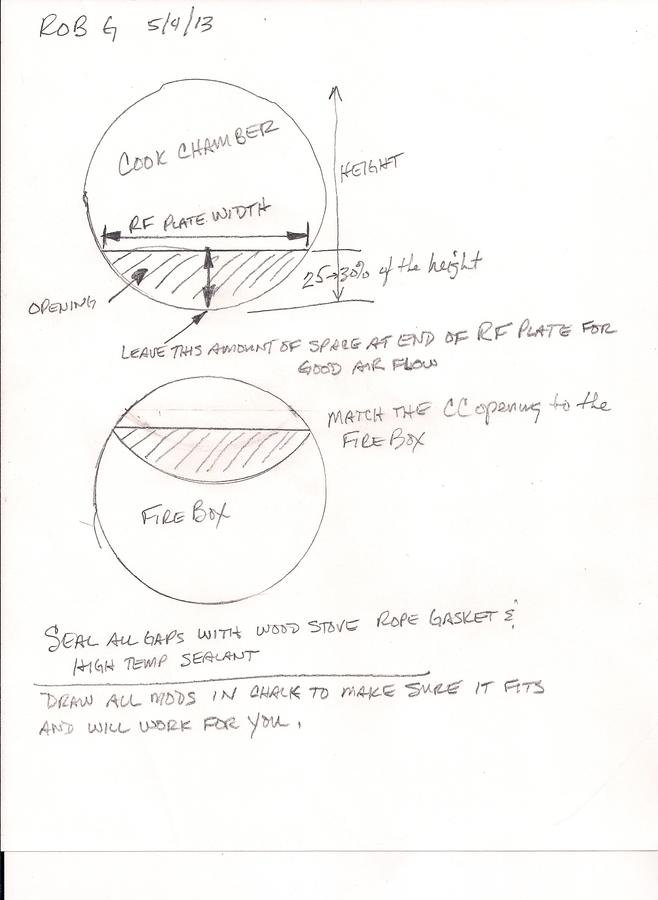 ROB G 5/4/13
COOK CHAMBER
HEIGHT
RF PLATE WIDTH
25→30% of the height
OPENING
LEAVE THIS AMOUNT OF SPACE AT END OF RF PLATE FOR
GOOD AIR FLOW
MATCH THE CC opening to the
FIRE BOX
FIRE BOX
SEAL ALL GAPS WITH WOOD STOVE ROPE GASKET &
HIGH TEMP SEALANT
DRAW ALL MODS IN CHALK TO MAKE SURE IT FITS
AND WILL WORK FOR YOU.